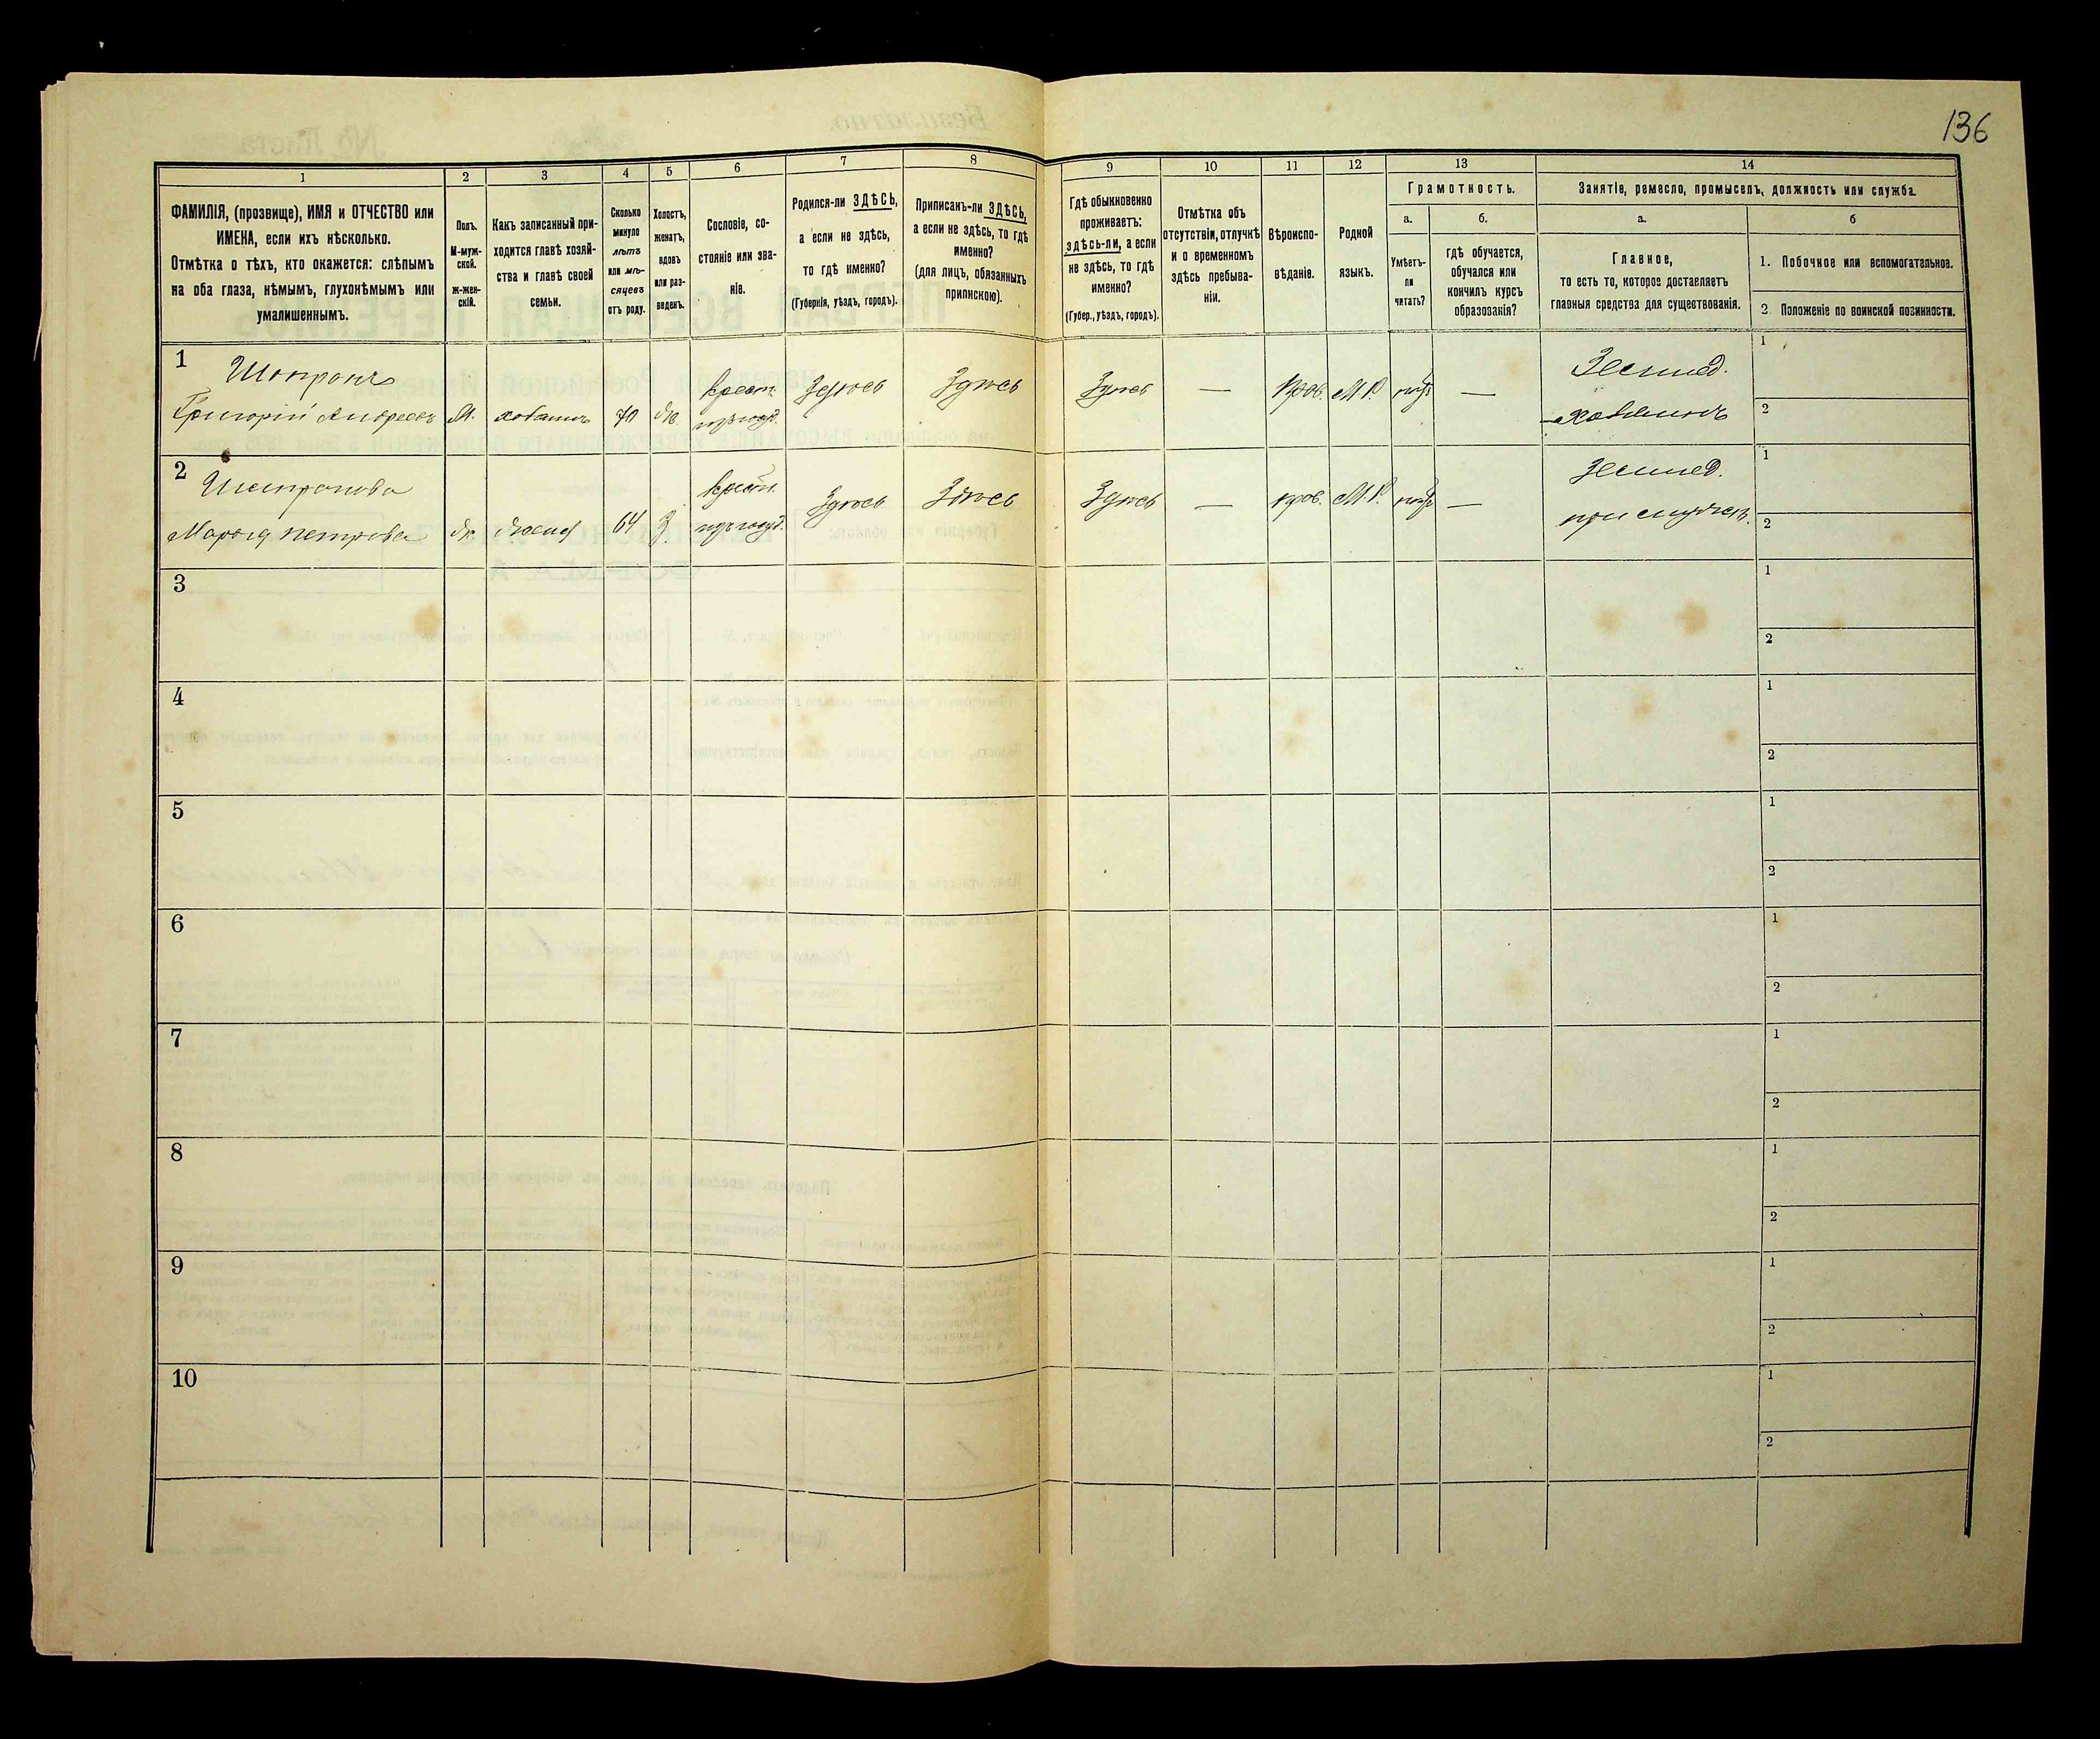 136
1
2
3
4
5
6
7
8
9
10
11
12
13
14
ФАМИЛІЯ, (прозвище), ИМЯ и ОТЧЕСТВО или
ИМЕНА, если ихъ нѣсколько.
Отмѣтка о тѣхъ, кто окажется: слѣпымъ
на оба глаза, нѣмымъ, глухонѣмымъ или
умалишеннымъ.
Полъ.
М-муж-
ской.
Ж-жен-
скій.
Какъ записанный при-
ходится главѣ хозяй-
ства и главѣ своей
семьи.
Сколько
минуло
лѣтъ
или мѣ-
сяцевъ
отъ роду.
Холостъ,
женатъ,
вдовъ
или раз-
веденъ.
Сословіе, со-
стояніе или зва-
ніе.
Родился-ли ЗДѢСЬ,
а если не здѣсь,
то гдѣ именно?
(Губернія, уѣздъ, городъ).
Приписанъ-ли ЗДѢСЬ,
а если не здѣсь, то гдѣ
именно?
(для лицъ, обязанныхъ
припискою).
Гдѣ обыкновенно
проживаетъ:
здѣсь-ли, а если
не здѣсь, то гдѣ
именно?
(Губер., уѣздъ, городъ).
Отмѣтка объ
отсутствіи, отлучкѣ
и о временномъ
здѣсь пребыва-
ніи.
Вѣроиспо-
вѣданіе.
Родной
языкъ.
Грамотность.
а.
б.
Умѣетъ-
ли
читать?
гдѣ обучается,
обучался или
кончилъ курсъ
образованія?
Занятіе, ремесло, промыселъ, должность или служба.
а.
б
Главное,
то есть то, которое доставляетъ
главныя средства для существованія.
1. Побочное или вспомогательное.
2. Положеніе по воинской повинности.
1
Григорій Андреевъ М. хозяинъ 70 Крест. Здѣсь Здѣсь Здѣсь — Прав. М.Р. — Землед.
Хозяинъ
1
2
2
Марья Петрова ж. жена 64 З. Крест. Здѣсь Здѣсь Здѣсь — прав. М.Р. — Землед.
1
2
3
1
2
4
1
2
5
1
2
6
1
2
7
1
2
8
1
2
9
1
2
10
1
2